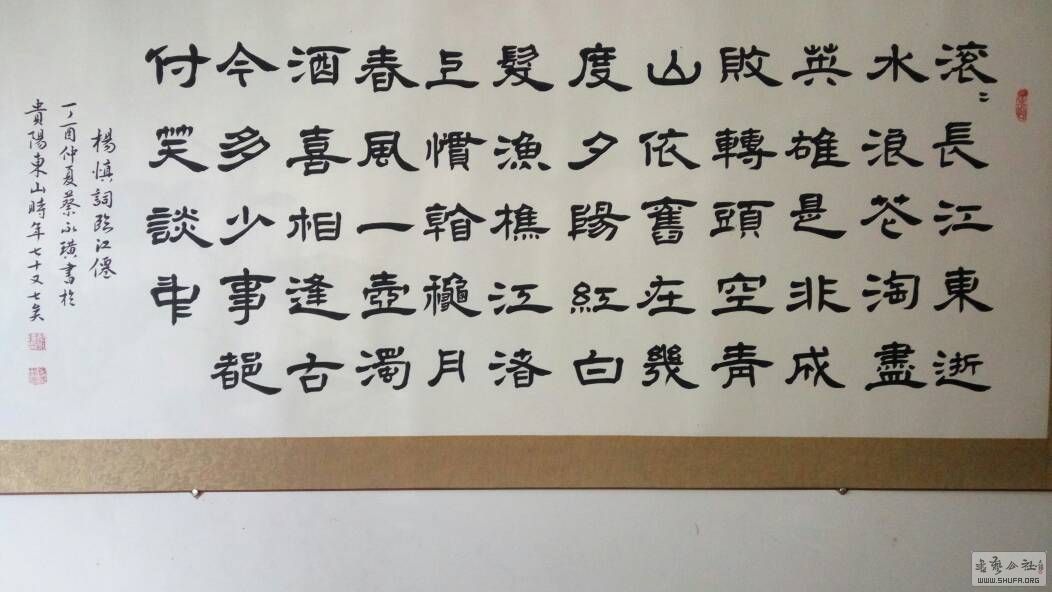 滚〻長江東逝
水浪花淘盡
英雄是非成
敗轉頭空青
山依舊在幾
度夕陽紅白
髮漁樵江渚
上慣看穐月
春風一壺濁
酒喜相逢古
今多少事都
付笑談中
楊慎詞臨江僊
丁酉仲夏蔡永璜書於
貴陽東山時年七十又七矣
书艺公社
WWW.SHUFA.ORG